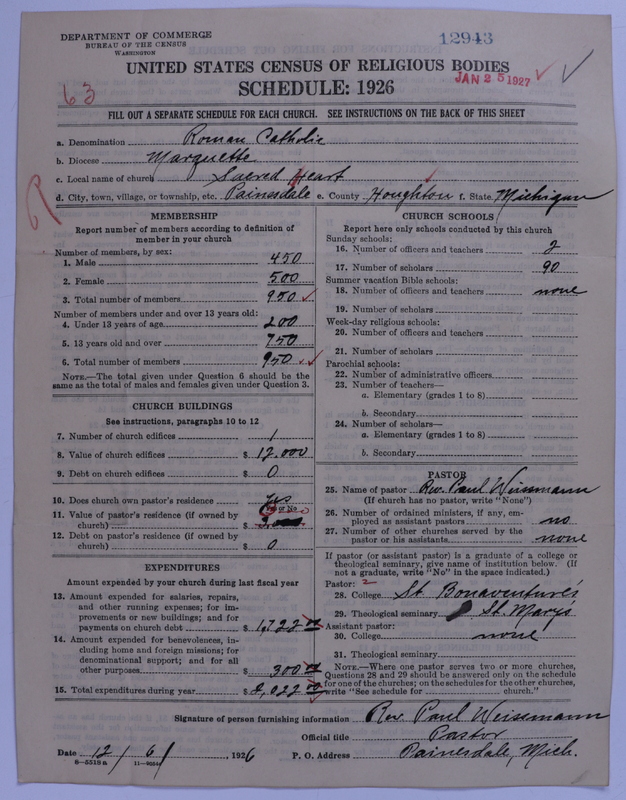 DEPARTMENT OF COMMERCE
BUREAU OF THE CENSUS
WASHINGTON
12943
UNITED STATES CENSUS OF RELIGIOUS BODIES
JAN 25 1927
SCHEDULE: 1926
63
FILL OUT A SEPARATE SCHEDULE FOR EACH CHURCH. SEE INSTRUCTIONS ON THE BACK OF THIS SHEET
a. Denomination Roman Catholic
b. Diocese Marquette
c. Local name of church Sacred Heart
d. City, town, village, or township, etc. Painesdale e. County Houghton f. State Michigan
MEMBERSHIP
Report number of members according to definition of
member in your church
Number of members, by sex:
1. Male 450
2. Female 500
3. Total number of members 950
Number of members under and over 13 years old:
4. Under 13 years of age 200
5. 13 years old and over 750
6. Total number of members 950
NOTE.—The total given under Question 6 should be the
same as the total of males and females given under Question 3.
CHURCH BUILDINGS
See instructions, paragraphs 10 to 12
7. Number of church edifices 1
8. Value of church edifices $ 12.000
9. Debt on church edifices $ 0
10. Does church own pastor's residence Yes
(Yes or No)
11. Value of pastor's residence (if owned by
church) $
12. Debt on pastor's residence (if owned by
church) $ 0
EXPENDITURES
Amount expended by your church during last fiscal year
13. Amount expended for salaries, repairs,
and other running expenses; for im-
provements or new buildings; and for
payments on church debt $ 1,722 00
14. Amount expended for benevolences, in-
cluding home and foreign missions; for
denominational support; and for all
other purposes $ 300 00
15. Total expenditures during year $ 2,022 00
CHURCH SCHOOLS
Report here only schools conducted by this church
Sunday schools:
16. Number of officers and teachers 2
17. Number of scholars 90
Summer vacation Bible schools:
18. Number of officers and teachers none
19. Number of scholars
Week-day religious schools:
20. Number of officers and teachers
21. Number of scholars
Parochial schools:
22. Number of administrative officers
23. Number of teachers—
a. Elementary (grades 1 to 8)
b. Secondary
24. Number of scholars—
a. Elementary (grades 1 to 8)
b. Secondary
PASTOR
25. Name of pastor Rev. Paul Weisemann
(If church has no pastor, write "None")
26. Number of ordained ministers, if any, em-
ployed as assistant pastors no
27. Number of other churches served by the
pastor or his assistants none
If pastor (or assistant pastor) is a graduate of a college or
theological seminary, give name of institution below. (If
not a graduate, write "No" in the space indicated.)
Pastor: 2
28. College St Bonaventure's
29. Theological seminary St. Mary's
Assistant pastor:
30. College none
31. Theological seminary
NOTE.—Where one pastor serves two or more churches,
Questions 28 and 29 should be answered only on the schedule
for one of the churches; on the schedules for the other churches,
write "See schedule for church."
Signature of person furnishing information Rev. Paul Weisemann
Official title Pastor
Date 12/6/, 1926 P. O. Address Painesdale, Mich.
8—5518a